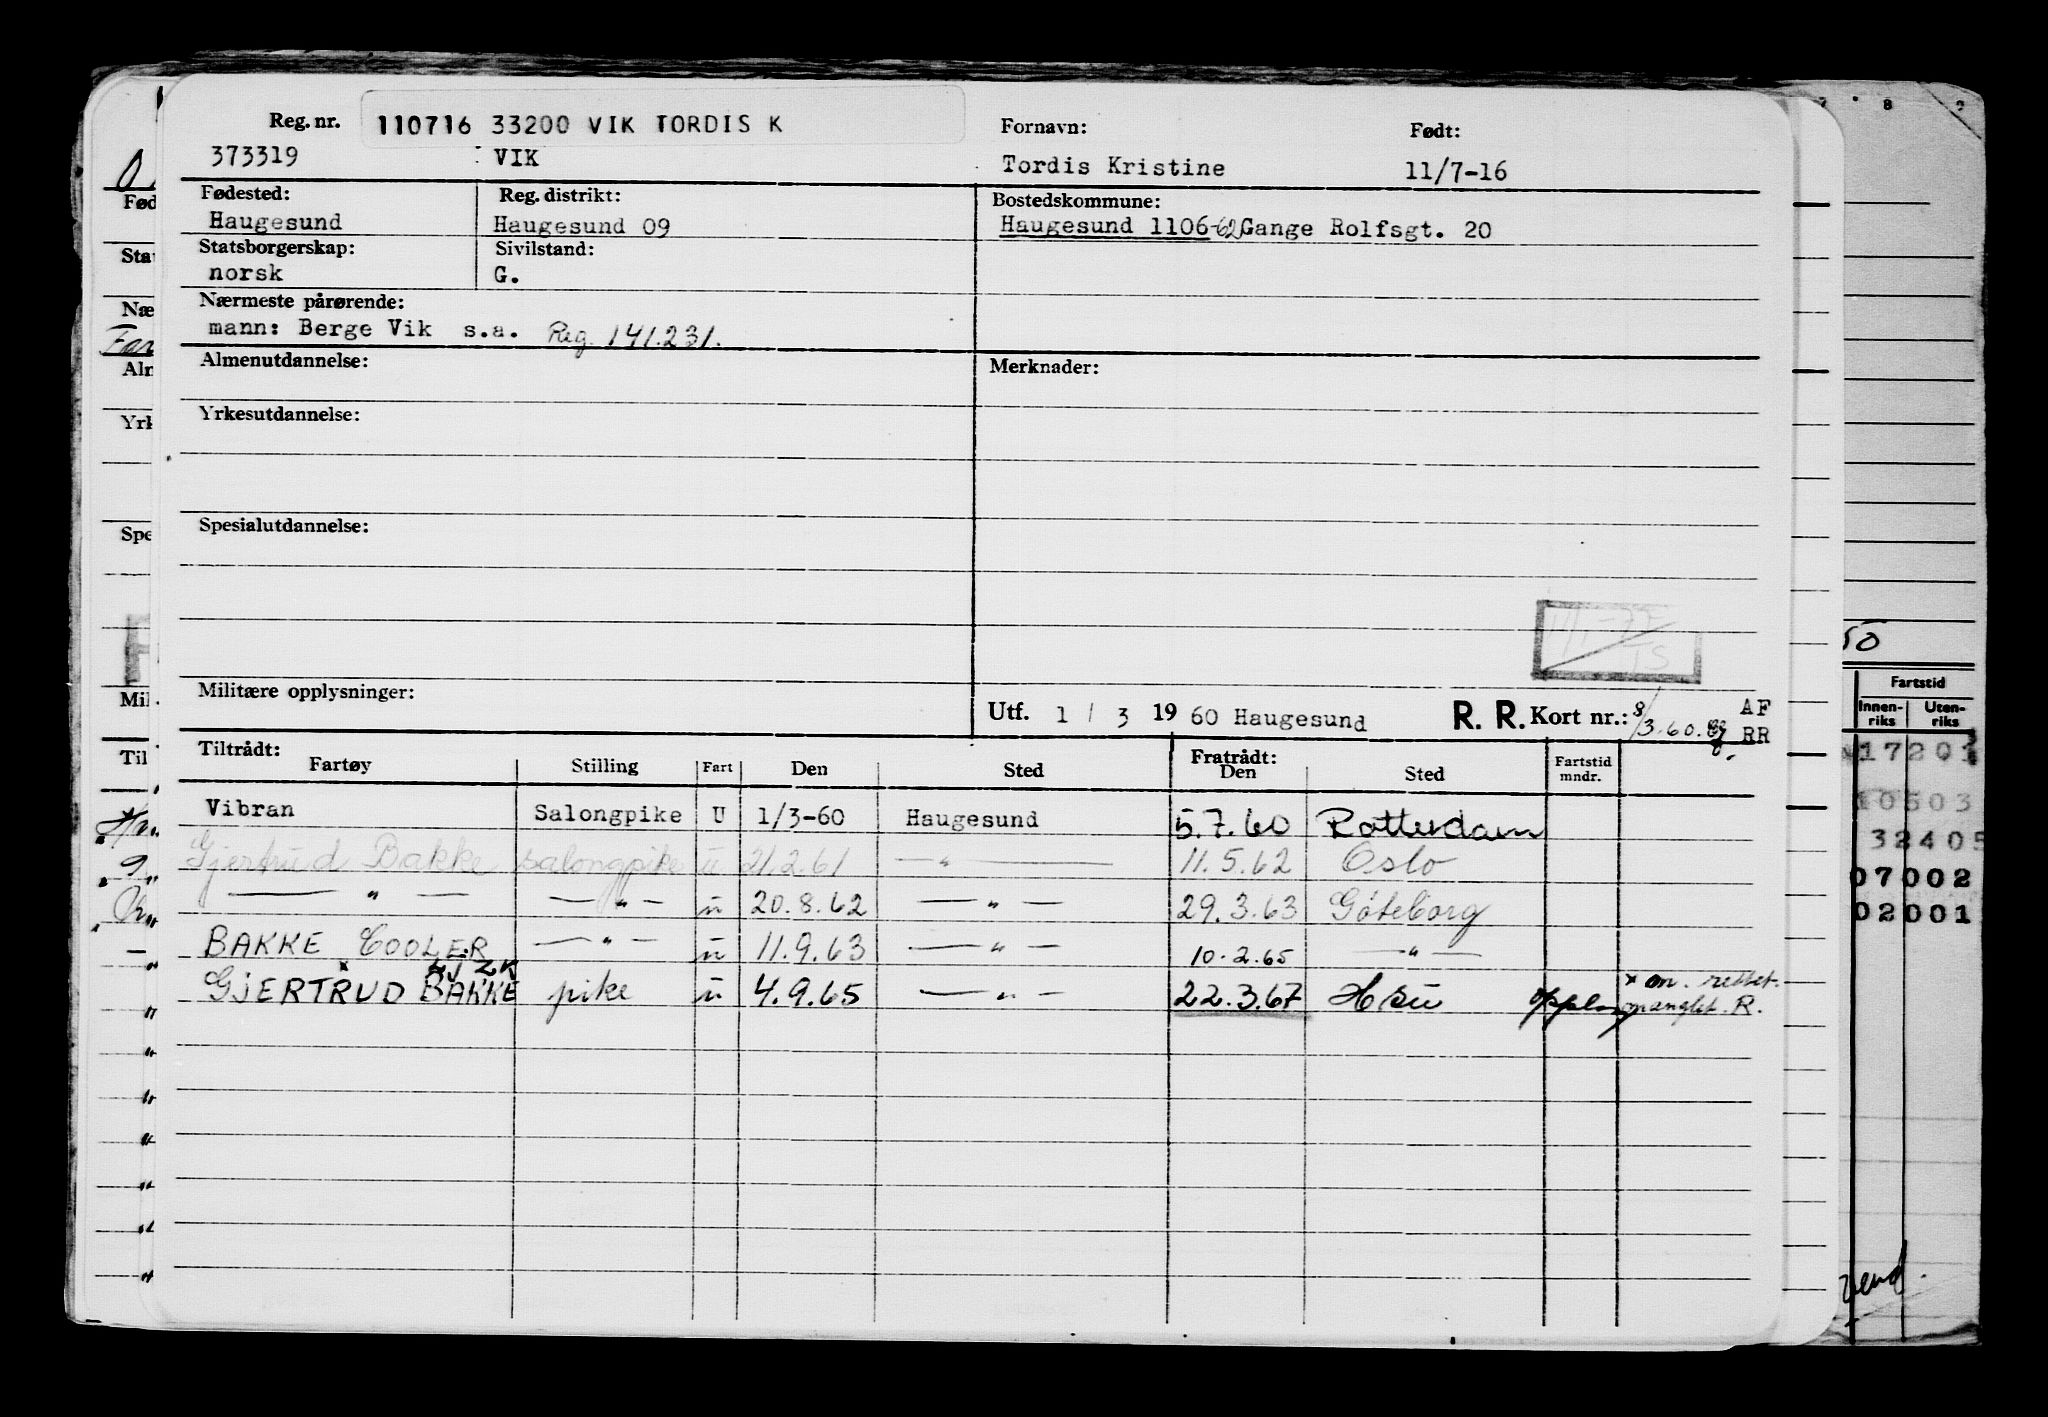 Reg. nr. 110716 33200 VIK TORDIS K Fornavn: Født:
373319 VIK Tordis Kristine 11/7-16
Fødested: Reg. distrikt: Bostedskommune:
Haugesund Haugesund 09 Haugesund 1106-62 Gange Rolfsgt. 20
Statsborgerskap: Sivilstand:
norsk G.
Nærmeste pårørende:
mann: Berge Vik s.a. Reg. 141.231.
Almenutdannelse: Merknader:
Yrkesutdannelse:
Spesialutdannelse:
Militære opplysninger:
Utf. 1 / 3 1960 Haugesund R. R. Kort nr.: 8/3.60. AF
RR
Tiltrådt: Fratrådt:
Fartøy Stilling Fart Den Sted Den Sted Fartstid mndr.
Vibran Salongpike U 1/3-60 Haugesund 5.7.60 Rotterdam
Gjertrud Bakke salongpike u 21.2.61 — " — 11.5.62 Oslo
— " — — " — u 20.8.62 — " — 29.3.63 Göteborg
BAKKE COOLER — " — u 11.9.63 — " — 10.2.65 — " —
LJ ZK
GJERTRUD BAKKE pike u 4.9.65 — " — 22.3.67 Hsu
Fød
Sta
Næ
Far
Aln
Yrk
Spe
Mil
Til
8 9
50
Fartstid
Innen-riks Uten-riks
17201
10503
32405
07002
02001